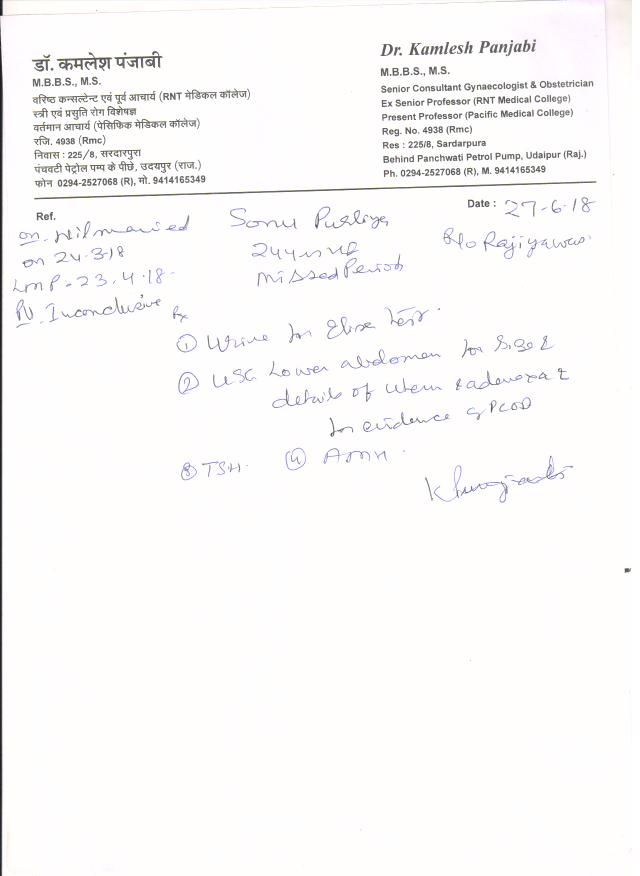 डॉ. कमलेश पंजाबी
M.B.B.S., M.S.
वरिष्ठ कन्सल्टेन्ट एवं पूर्व आचार्य (RNT मेडिकल कॉलेज)
स्त्री एवं प्रसुति रोग विशेषज्ञ
वर्तमान आचार्य (पेसिफिक मेडिकल कॉलेज)
रजि. 4938 (Rmc)
निवास : 225/8, सरदारपुरा
पंचवटी पेट्रोल पम्प के पीछे, उदयपुर (राज.)
फोन 0294-2527068 (R), मो. 9414165349
Dr. Kamlesh Panjabi
M.B.B.S., M.S.
Senior Consultant Gynaecologist & Obstetrician
Ex Senior Professor (RNT Medical College)
Present Professor (Pacific Medical College)
Reg. No. 4938 (Rmc)
Res : 225/8, Sardarpura
Behind Panchwati Petrol Pump, Udaipur (Raj.)
Ph. 0294-2527068 (R), M. 9414165349
Ref.
Date : 27-6-18
Nil married
on 24-3-18
LMP - 23.4.18-
PV. Inconclusive
Sonu
Missed Period
Rx
① Urine for Elisa Test.
② USG Lower abdomen for size &
details of &
for evidence of PCOD
③ TSH. ④ AMH.